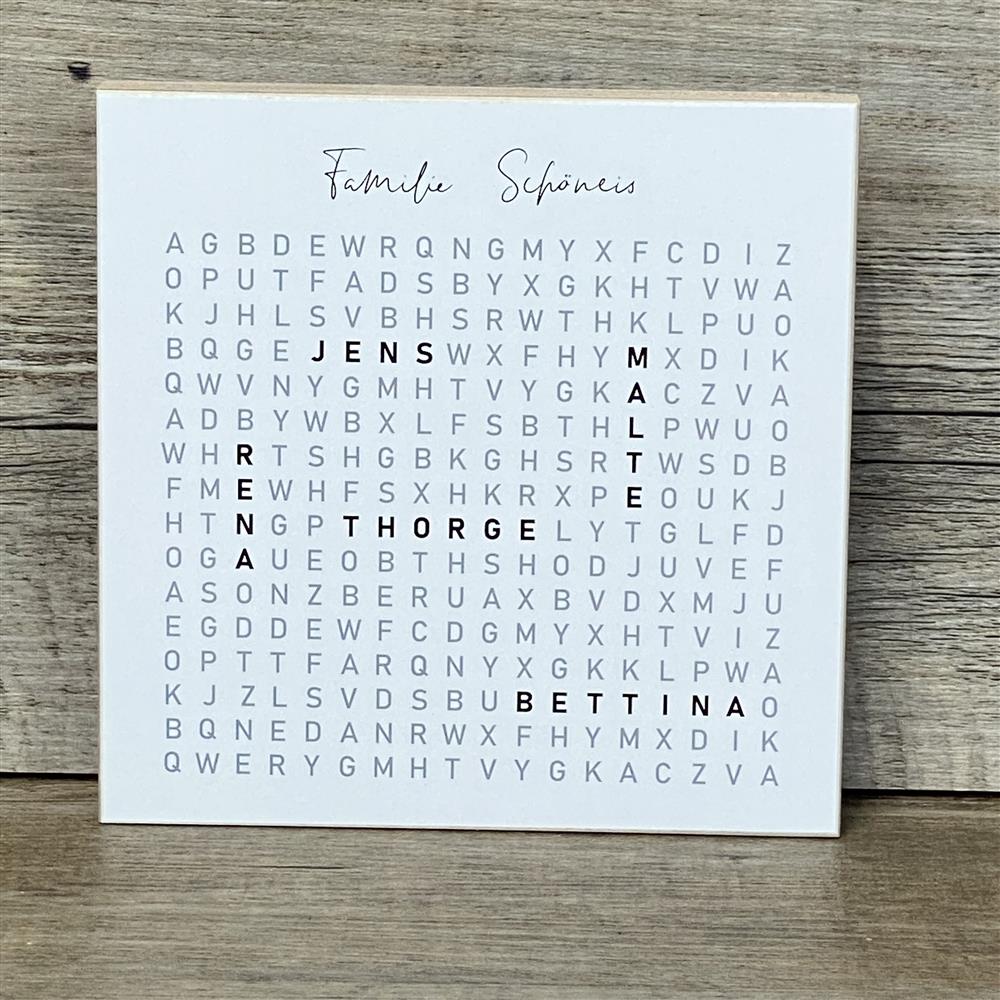 Familie Schöneis
A G B D E W R Q N G M Y X F C D I Z
O P U T F A D S B Y X G K H T V W A
K J H L S V B H S R W T H K L P U O
B Q G E J E N S W X F H Y M X D I K
Q W V N Y G M H T V Y G K A C Z V A
A D B Y W B X L F S B T H L P W U O
W H R T S H G B K G H S R T W S D B
F M E W H F S X H K R X P E O U K J
H T N G P T H O R G E L Y T G L F D
O G A U E O B T H S H O D J U V E F
A S O N Z B E R U A X B V D X M J U
E G D D E W F C D G M Y X H T V I Z
O P T T F A R Q N Y X G K K L P W A
K J Z L S V D S B U B E T T I N A O
B Q N E D A N R W X F H Y M X D I K
Q W E R Y G M H T V Y G K A C Z V A